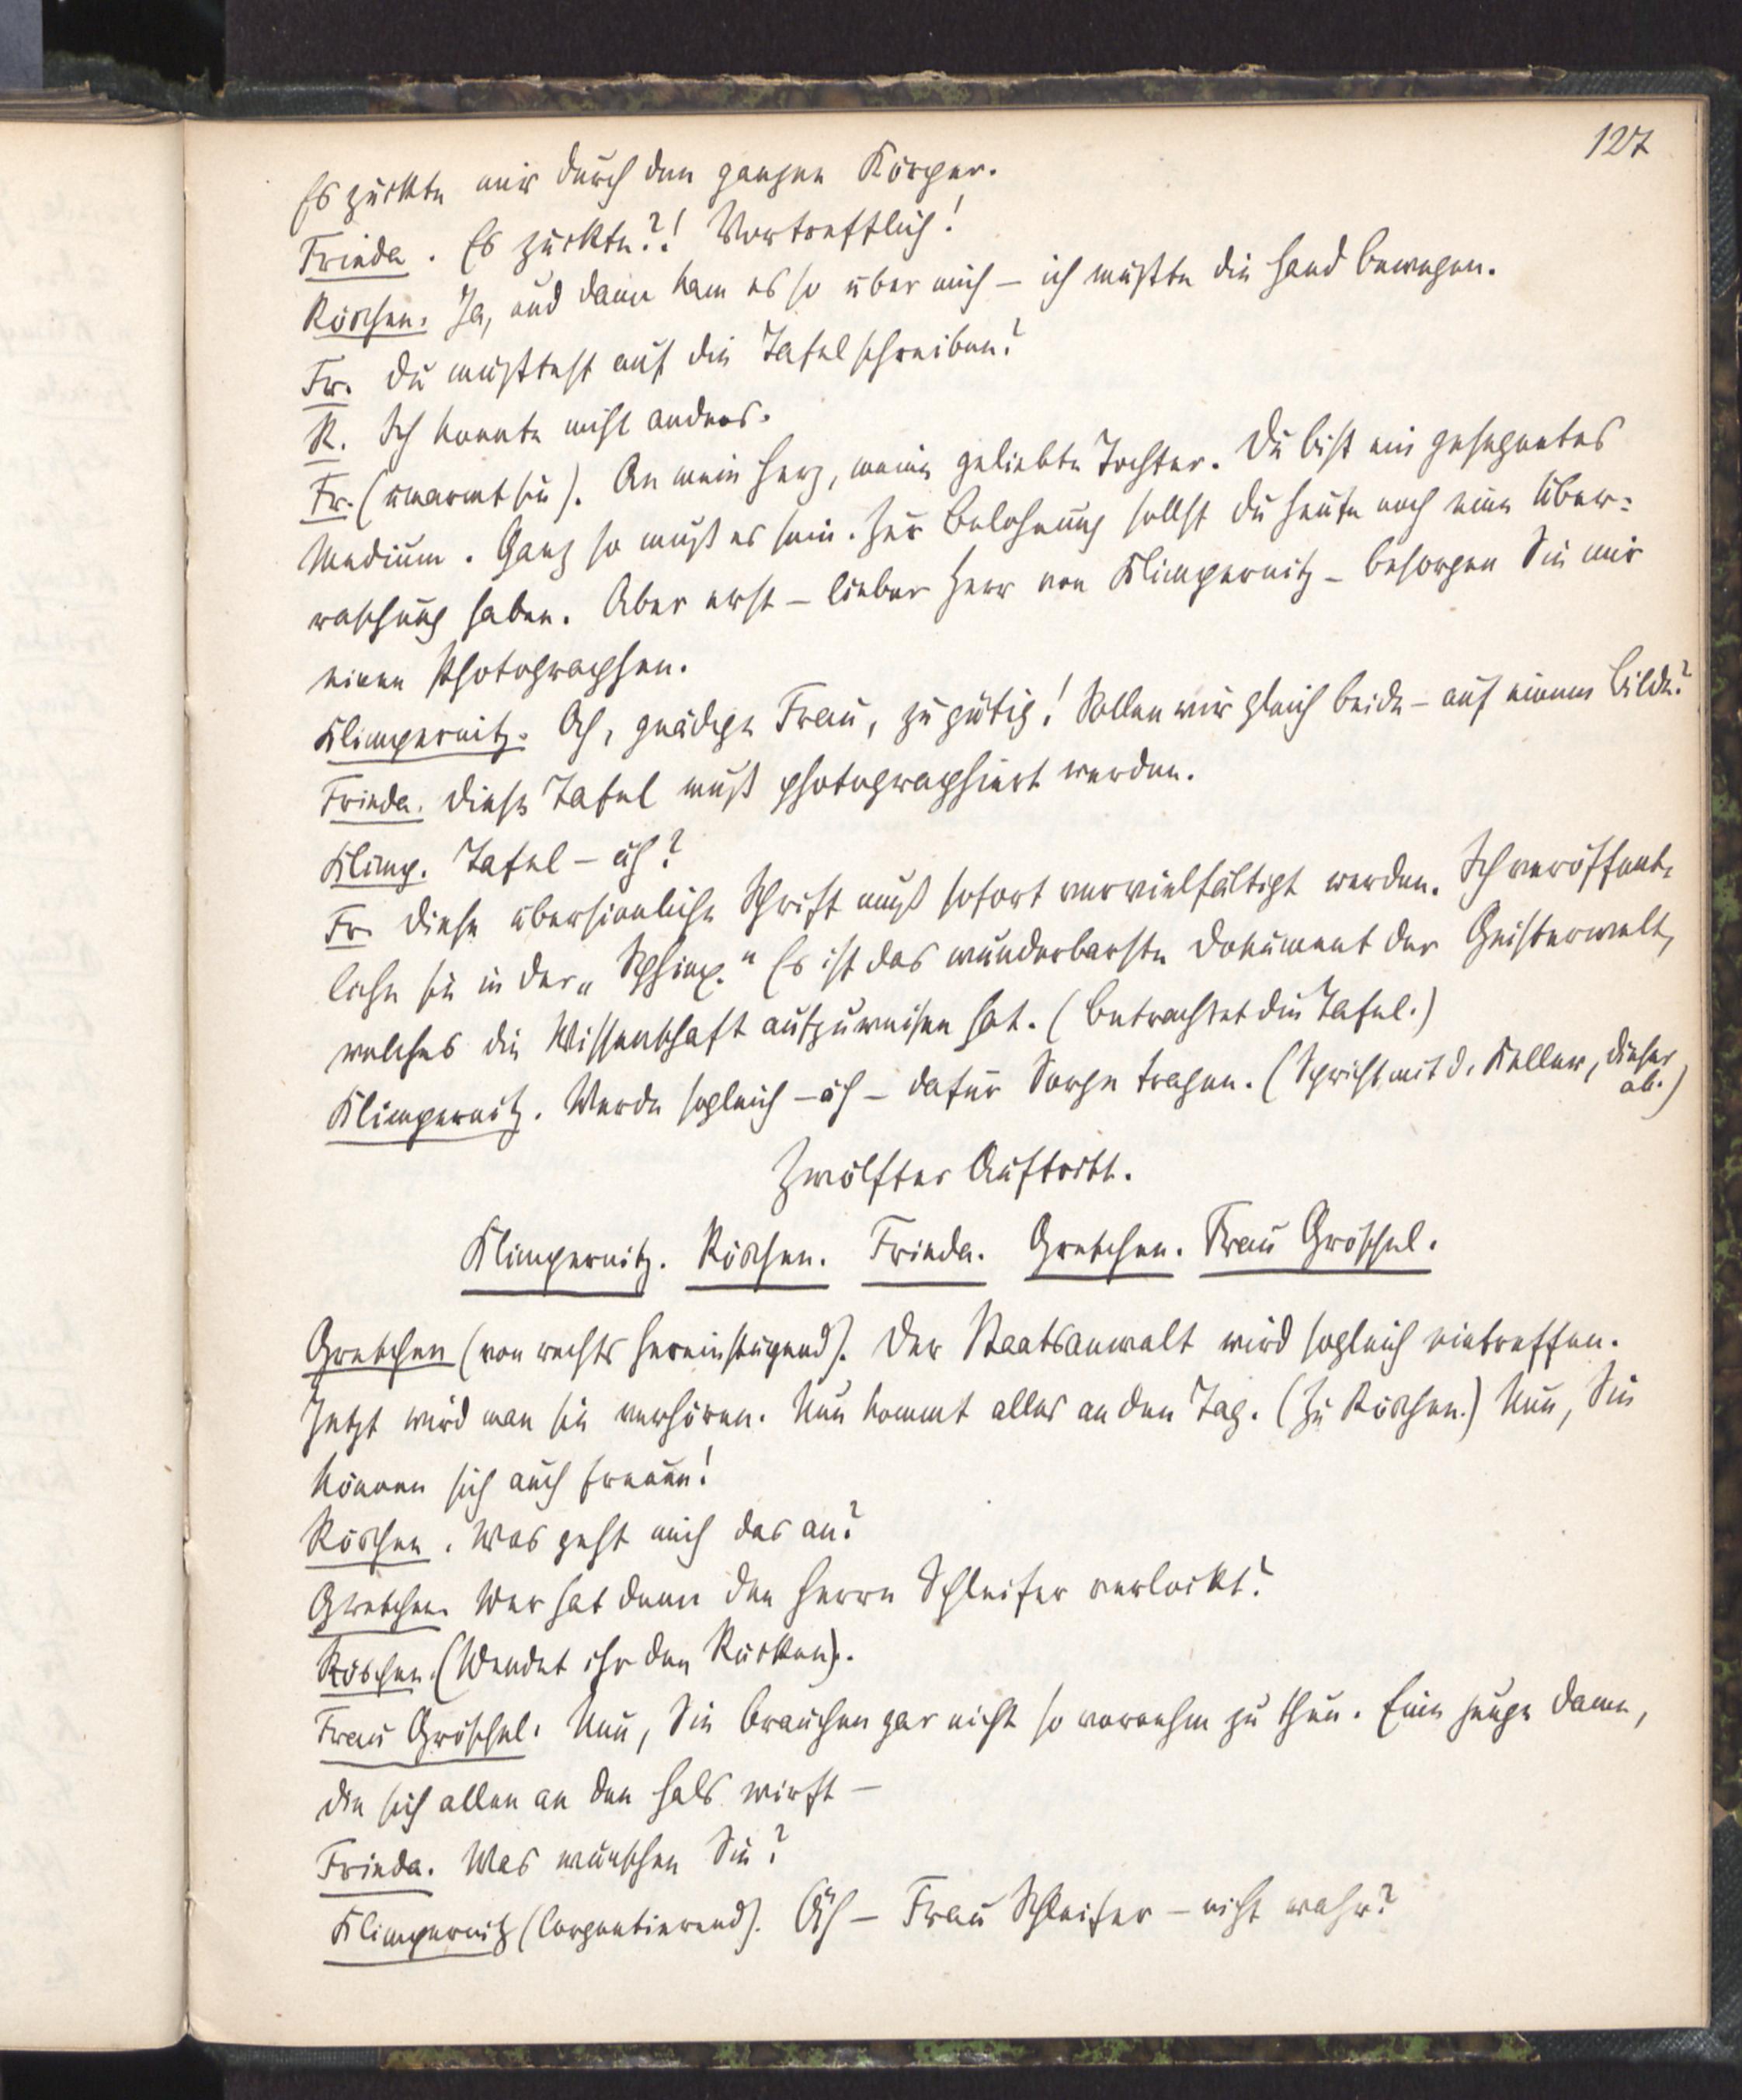 127
Es zuckte mir durch den ganzen Körper.
Frieda. Es zuckte?! Vortrefflich!
Röschen. Ja, und dann kam es so über mich – ich mußte die Hand bewegen.
Fr. Du mußtest auf die Tafel schreiben?
R. Ich konnte nicht anders.
Fr. (umarmt sie). An mein Herz, meine geliebte Tochter. Du bist ein gesegnetes
Medium. Ganz so muß es sein. Zur Belohnung sollst Du heute noch eine Über-
raschung haben. Aber erst – lieber Herr von Klimpernitz – besorgen Sie mir
einen Photographen.
Klimpernitz. Ach, gnädige Frau, zu gütig! Sollen wir gleich beide – auf einem Bilde?
Frieda. Diese Tafel muß photographiert werden.
Klimp. Tafel – äh?
Fr. Diese übersinnliche Schrift muß sofort vervielfältigt werden. Ich veröffent-
liche sie in der „Sphinx." Es ist das wunderbarste Dokument der Geisterwelt,
welches die Wissenschaft aufzuweisen hat. (Betrachtet die Tafel.)
Klimpernitz. Werde sogleich – äh – dafür Sorge tragen. (Spricht mit d. Kellner, dieser
ab.)
Zwölfter Auftritt.
Klimpernitz. Röschen. Frieda. Gretchen. Frau Gröschel.
Gretchen (von rechts hereinsteigend). Der Staatsanwalt wird sogleich eintreffen.
Jetzt wird man sie verhören. Nun kommt alles an den Tag. (Zu Röschen.) Nun, Sie
können sich auch freuen!
Röschen. Was geht mich das an?
Gretchen. Wer hat denn den Herrn Schleifer verlockt?
Röschen. (Wendet ihr den Rücken).
Frau Gröschel. Nun, Sie brauchen gar nicht so vornehm zu thun. Eine junge Dame,
die sich allen an den Hals wirft –
Frieda. Was wünschen Sie?
Klimpernitz (lorgnettierend). Äh – Frau Schleifer – nicht wahr?